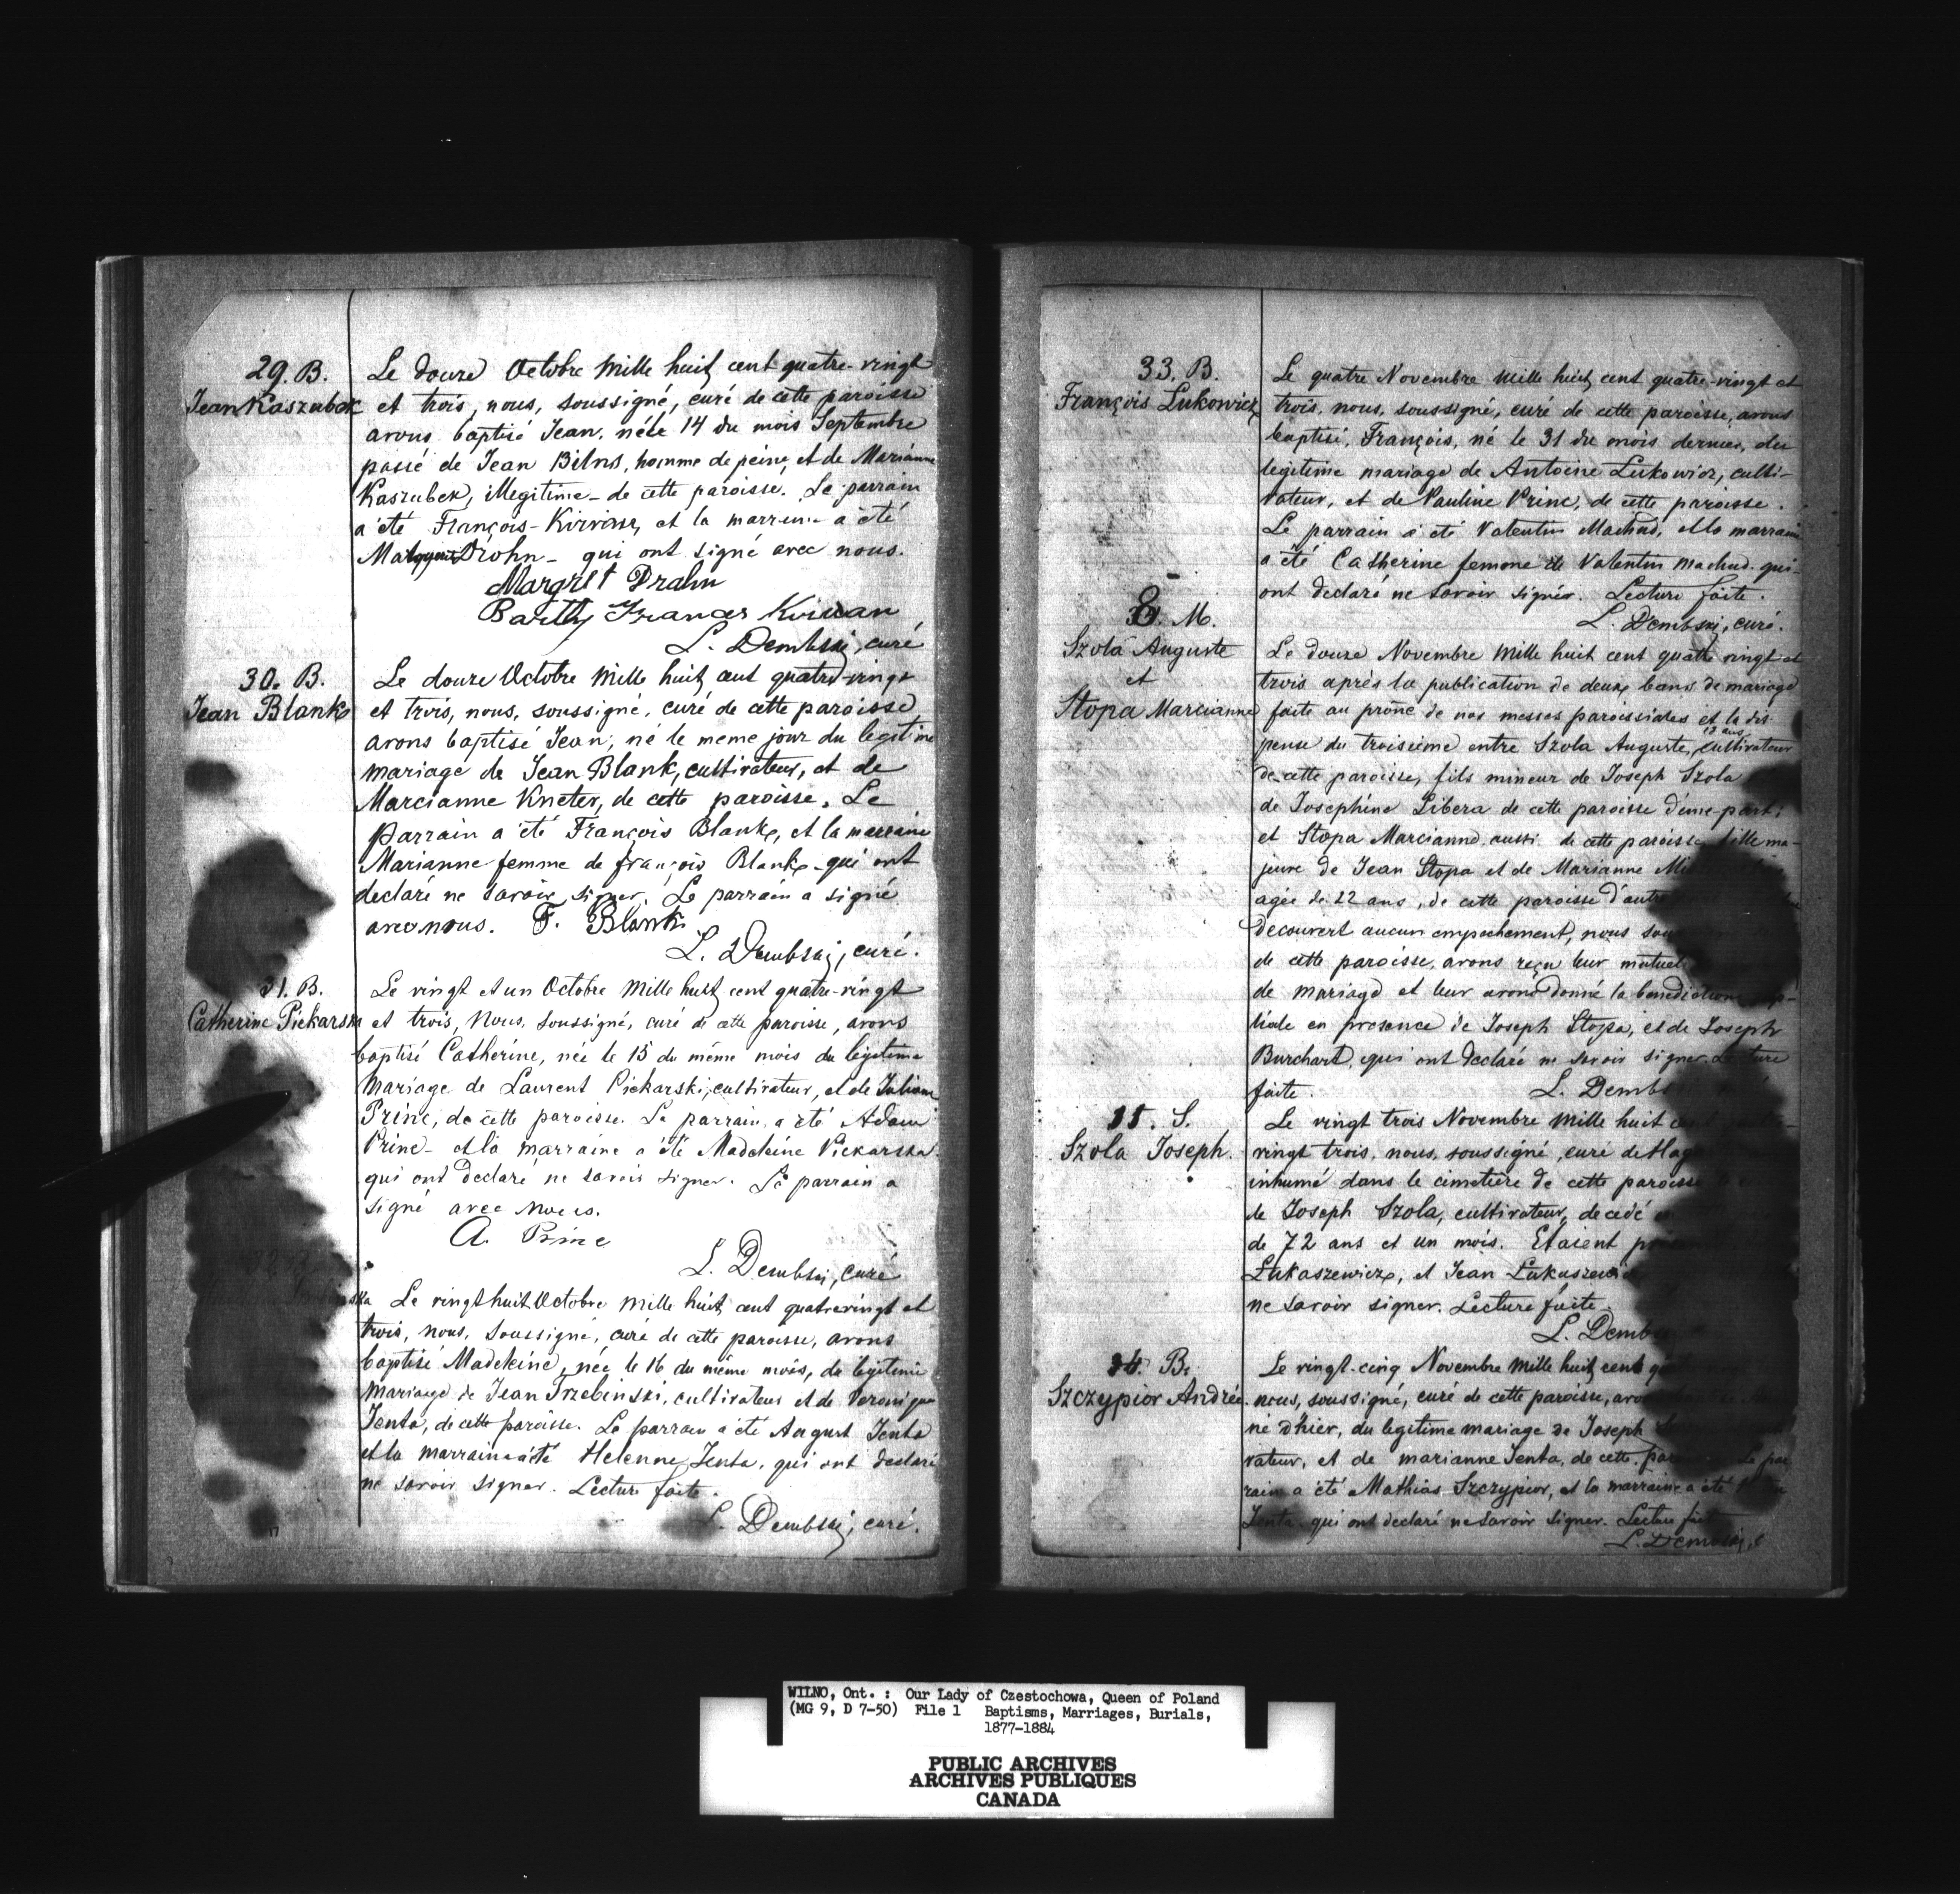 29. B.
Jean Kaszubek
Le douze Octobre mille huit cent quatre-vingt
et trois, nous, soussigné, curé de cette paroisse
avons baptisé Jean, né le 14 du mois Septembre
passé de Jean Bilns, homme de peine, et de Marianne
Kaszubek, illegitime - de cette paroisse. Le parrain
a été François - Kirvinn, et la marraine a été
Drohn - qui ont signé avec nous.
Margret Drahn
Francis Kirwan
L. Dembski, curé
30. B.
Jean Blank
Le douze Octobre mille huit cent quatre-vingt
et trois, nous, soussigné, curé de cette paroisse
avons baptisé Jean, né le meme jour du legitime
mariage de Jean Blank, cultivateur, et de
Marcianne Kneter, de cette paroisse. Le
parrain a été François Blank, et la marraine
Marianne femme de françois Blank - qui ont
declaré ne savoir signer. Le parrain a signé
avec nous. F. Blank
L. Dembski, curé.
31. B.
Catherine Piekarska
Le vingt et un Octobre mille huit cent quatre-vingt
et trois, nous, soussigné, curé de cette paroisse, avons
baptisé Catherine, née le 15 du même mois du légitime
mariage de Laurent Piekarski, cultivateur, et de Julianne
Princ, de cette paroisse. Le parrain a été Adam
Princ - et la marraine a été Madeleine Piekarska
qui ont declaré ne savoir signer. Le parrain a
signé avec nous.
A. Princ
L. Dembski, curé
32. B
Le vingt huit Octobre mille huit cent quatrevingt et
trois, nous, soussigné, curé de cette paroisse, avons
baptisé Madeleine, née le 16 du même mois, du légitime
mariage de Jean Trzebinski, cultivateur et de Veronique
Jenta, de cette paroisse. Le parrain a été August Jenta
et la marraine a été Helenne Jenta, qui ont declaré
ne savoir signer. Lecture faite.
L. Dembski, curé.
17
33. B.
François Lukowicz
Le quatre Novembre mille huit cent quatre-vingt et
trois, nous, soussigné, curé de cette paroisse, avons
baptisé, François, né le 31 du mois dernier, du
legitime mariage de Antoine Lukowicz, culti-
vateur, et de Pauline Princ, de cette paroisse.
Le parrain a été Valentin Machud, et la marraine
a été Catherine femme de Valentin Machud. qui-
ont declaré ne savoir signer. Lecture faite.
L. Dembski, curé.
8. M.
Szola Auguste
et
Stopa Marcianne
Le douze Novembre mille huit cent quatre vingt et
trois après la publication de deux bans de mariage
faite au prône de nos messes paroissiales et la dis-
pense du troisième entre Szola Auguste, cultivateur
de cette paroisse, fils mineur de Joseph Szola
de Josephine Libera de cette paroisse d'une part;
et Stopa Marcianne aussi de cette paroisse fille ma-
jeure de Jean Stopa et de Marianne
agée de 22 ans, de cette paroisse d'autre
decouvert aucun empechement, nous
de cette paroisse, avons reçu leur mutuel
de mariage et leur avons donné la benediction
tiale en presence de Joseph Stopa, et de Joseph
Burchart, qui ont declaré ne savoir signer. Lecture
faite.
L. Demb
S.
Szola Joseph.
Le vingt trois Novembre mille huit cent
vingt trois, nous, soussigné, curé de Hag
inhumé dans le cimetière de cette paroisse
de Joseph Szola, cultivateur, decedé
de 72 ans et un mois. Etaient
Lukaszewicz, et Jean Lukaszewicz
ne savoir signer. Lecture faite.
L. Dembs
34. B.
Szczypior Andrée.
Le vingt-cinq Novembre mille huit cent
nous, soussigné, curé de cette paroisse,
né d'hier, du legitime mariage de Joseph
vateur, et de marianne Jenta, de cette Le par
rain a été Mathias Szczypior, et la marraine a été
Jenta qui ont declaré ne savoir signer. Lecture faite
L. Dembski, c
WILNO, Ont. : Our Lady of Czestochowa, Queen of Poland
(MG 9, D 7-50) File 1 Baptisms, Marriages, Burials,
1877-1884
PUBLIC ARCHIVES
ARCHIVES PUBLIQUES
CANADA